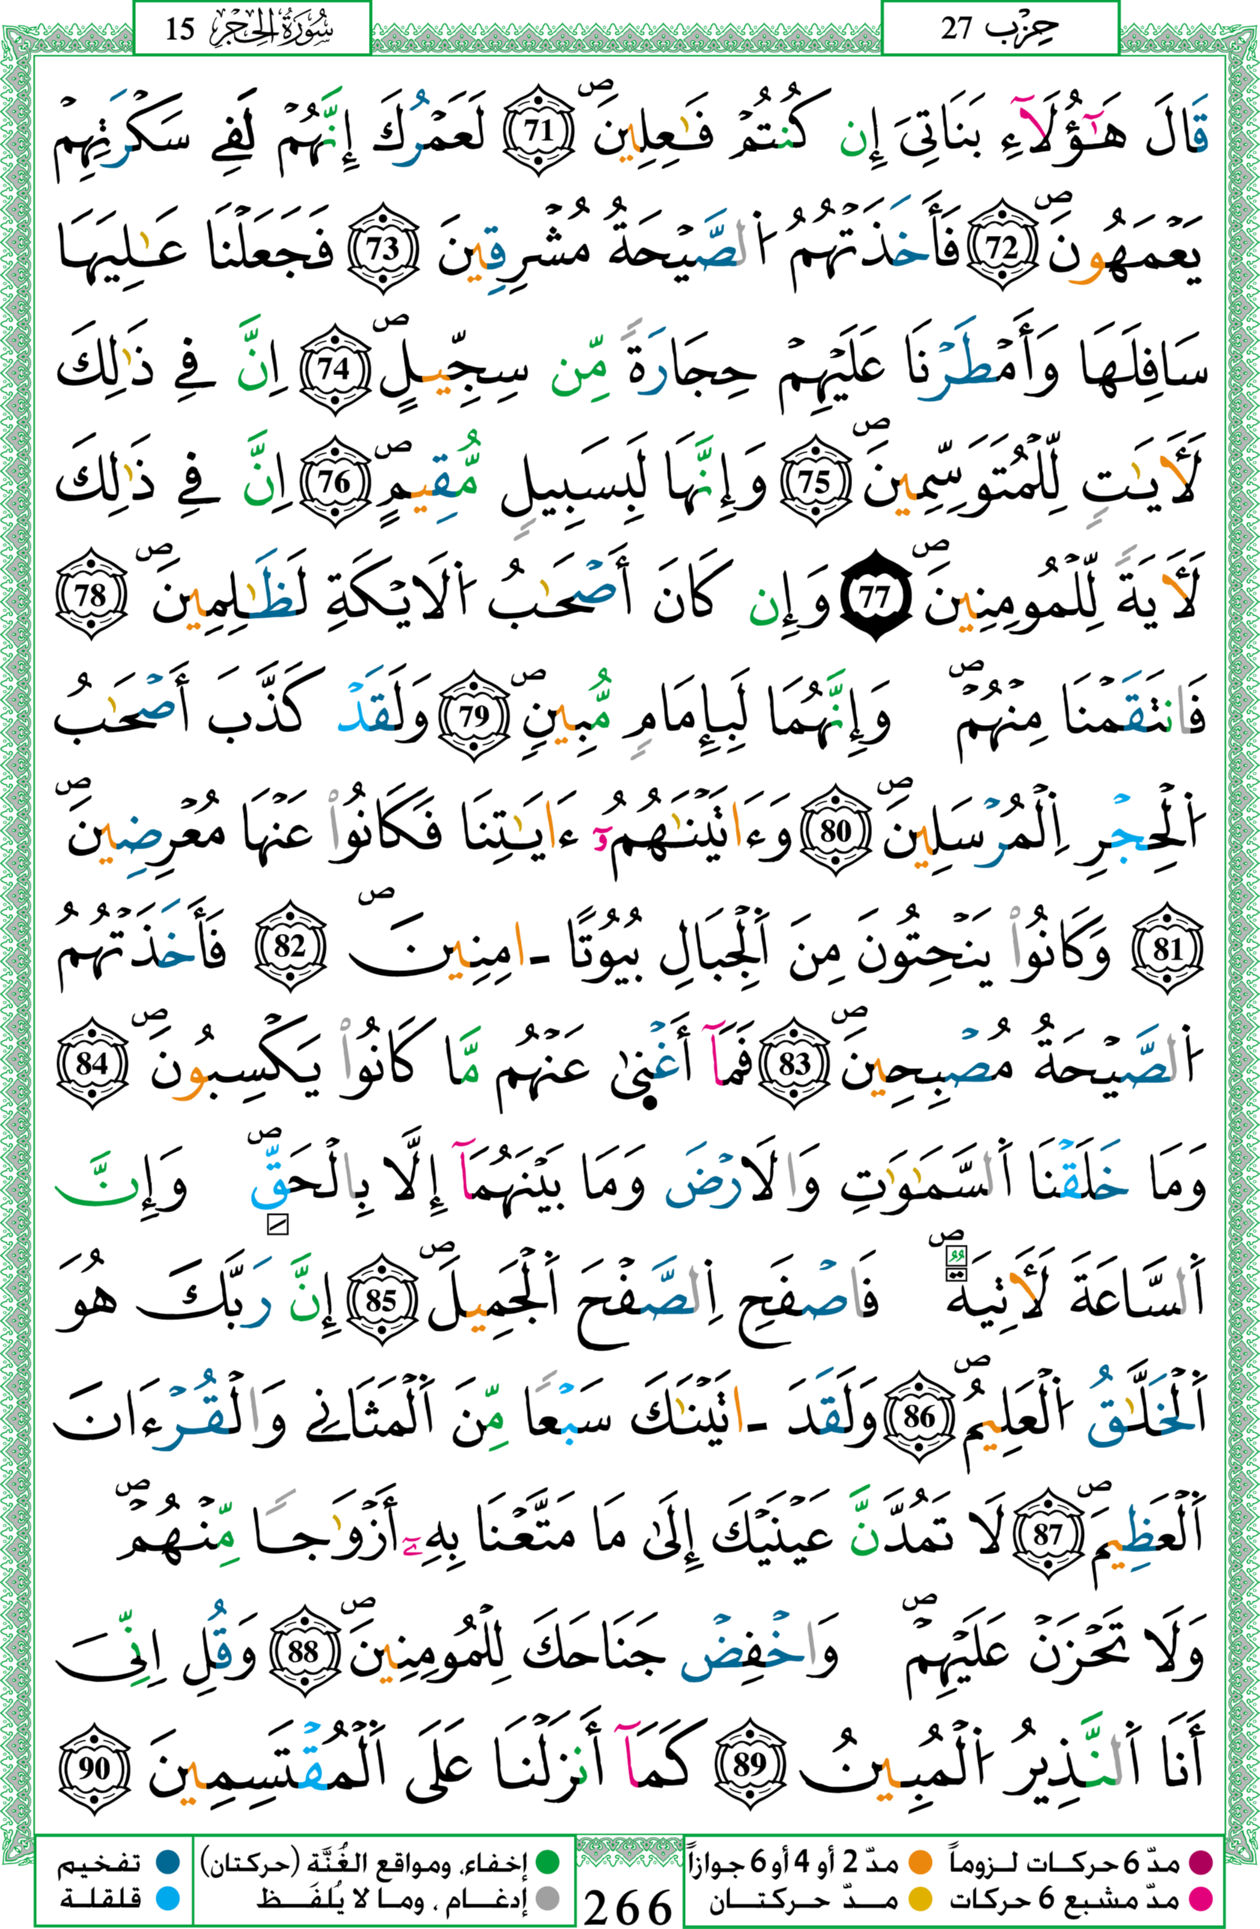 سُورَةُ الحِجْرِ 15
حِزْب 27
قَالَ هَٰٓؤُلَآءِ بَنَاتِيَ إِن كُنتُمْ فَٰعِلِينَۖ 71 لَعَمْرُكَ إِنَّهُمْ لَفِے سَكْرَتِهِمْ
يَعْمَهُونَۖ 72 فَأَخَذَتْهُمُ اُ۬لصَّيْحَةُ مُشْرِقِينَ 73 فَجَعَلْنَا عَٰلِيَهَا
سَافِلَهَا وَأَمْطَرْنَا عَلَيْهِمْ حِجَارَةً مِّن سِجِّيلٍۖ 74 اِنَّ فِے ذَٰلِكَ
لَأٓيَٰتٍ لِّلْمُتَوَسِّمِينَۖ 75 وَإِنَّهَا لَبِسَبِيلٍ مُّقِيمٍۖ 76 اِنَّ فِے ذَٰلِكَ
لَأٓيَةً لِّلْمُومِنِينَۖ 77 وَإِن كَانَ أَصْحَٰبُ اُ۬لَايْكَةِ لَظَٰلِمِينَۖ 78
فَانتَقَمْنَا مِنْهُمْۖ وَإِنَّهُمَا لَبِإِمَامٍ مُّبِينٍۖ 79 وَلَقَدْ كَذَّبَ أَصْحَٰبُ
اُ۬لْحِجْرِ اِ۬لْمُرْسَلِينَۖ 80 وَءَاتَيْنَٰهُمُۥٓ ءَايَٰتِنَا فَكَانُواْ عَنْهَا مُعْرِضِينَۖ
81 وَكَانُواْ يَنْحِتُونَ مِنَ اَ۬لْجِبَالِ بُيُوتًا ـ امِنِينَۖ 82 فَأَخَذَتْهُمُ
اُ۬لصَّيْحَةُ مُصْبِحِينَۖ 83 فَمَآ أَغْن۪ىٰ عَنْهُم مَّا كَانُواْ يَكْسِبُونَۖ 84
وَمَا خَلَقْنَا اَ۬لسَّمَٰوَٰتِ وَالَارْضَ وَمَا بَيْنَهُمَآ إِلَّا بِالْحَقِّۖ وَإِنَّ
اَ۬لسَّاعَةَ لَأٓتِيَةٌۖ فَاصْفَحِ اِ۬لصَّفْحَ اَ۬لْجَمِيلَۖ 85 إِنَّ رَبَّكَ هُوَ
اَ۬لْخَلَّٰقُ اُ۬لْعَلِيمُۖ 86 وَلَقَدَ ـ اتَيْنَٰكَ سَبْعًا مِّنَ اَ۬لْمَثَانِے وَالْقُرْءَانَ
اَ۬لْعَظِيمَۖ 87 لَا تَمُدَّنَّ عَيْنَيْكَ إِلَىٰ مَا مَتَّعْنَا بِهِۦٓ أَزْوَٰجًا مِّنْهُمْۖ
وَلَا تَحْزَنْ عَلَيْهِمْۖ وَاخْفِضْ جَنَاحَكَ لِلْمُومِنِينَۖ 88 وَقُلِ اِنِّيَ
أَنَا اَ۬لنَّذِيرُ اُ۬لْمُبِينُ 89 كَمَآ أَنزَلْنَا عَلَى اَ۬لْمُقْتَسِمِينَ 90
مدّ 6 حركات لزوماً
مدّ 2 أو 4 أو 6 جوازاً
إخفاء، ومواقع الغُنَّة (حركتان)
تفخيم
مدّ مشبع 6 حركات
مدّ حركتان
إدغام ، وما لا يُلفَظ
قلقلة
266